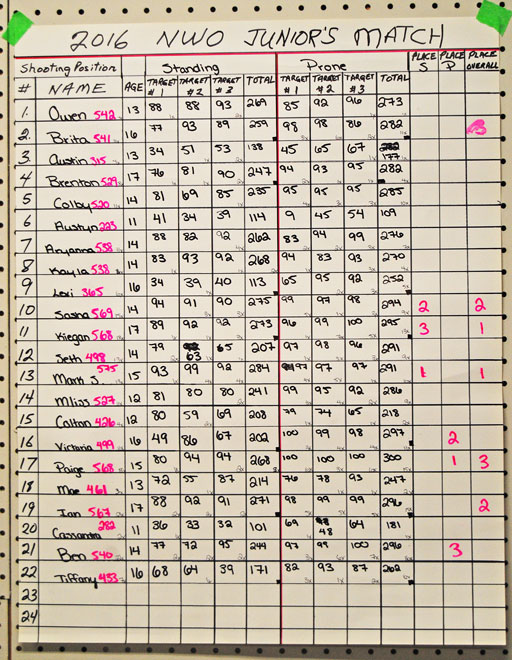 2016 NWO JUNIOR'S MATCH
Shooting Position Standing Prone PLACE S PLACE P PLACE OVERALL
# NAME AGE TARGET #1 TARGET #2 TARGET #3 TOTAL TARGET #1 TARGET #2 TARGET #3 TOTAL
1. Owen 542 13 88 88 93 269 85 92 96 273
2. Brita 541 16 77 93 89 259 98 98 86 282
3 Austin 315 13 34 51 53 138 45 65 67 177
4 Brenton 529 17 76 81 90 247 94 93 95 282
5 Colby 520 14 81 69 85 235 95 95 95 285
6 Austyn 223 11 41 34 39 114 9 45 54 109
7 Aryanna 538 14 88 82 92 262 83 94 99 276
8 Kayla 538 14 83 93 92 268 94 83 93 270
9 Lexi 365 16 34 39 40 113 65 95 92 252
10 Sasha 569 14 94 91 90 275 99 97 98 294 2 2
11 Kiegan 568 17 89 92 92 273 96 99 100 295 3 1
12 Seth 498 14 79 63 65 207 97 98 96 291
13 Mark S. 575 15 93 99 92 284 97 97 97 291 1 1
14 Mliss 527 12 81 80 80 241 99 95 92 286
15 Colton 426 12 80 59 69 208 79 74 65 218
16 Victoria 499 16 49 86 67 202 100 99 98 297 2
17 Paige 568 15 80 94 94 268 100 100 100 300 1 3
18 Mae 461 13 72 55 87 214 76 78 93 247
19 Ian 567 17 88 92 91 271 98 99 99 296 2
20 Cassandra 282 11 36 33 32 101 69 48 64 181
21 Ben 540 14 77 72 95 244 97 99 100 296 3
22 Tiffany 433 16 68 64 39 171 82 93 87 262
23
24